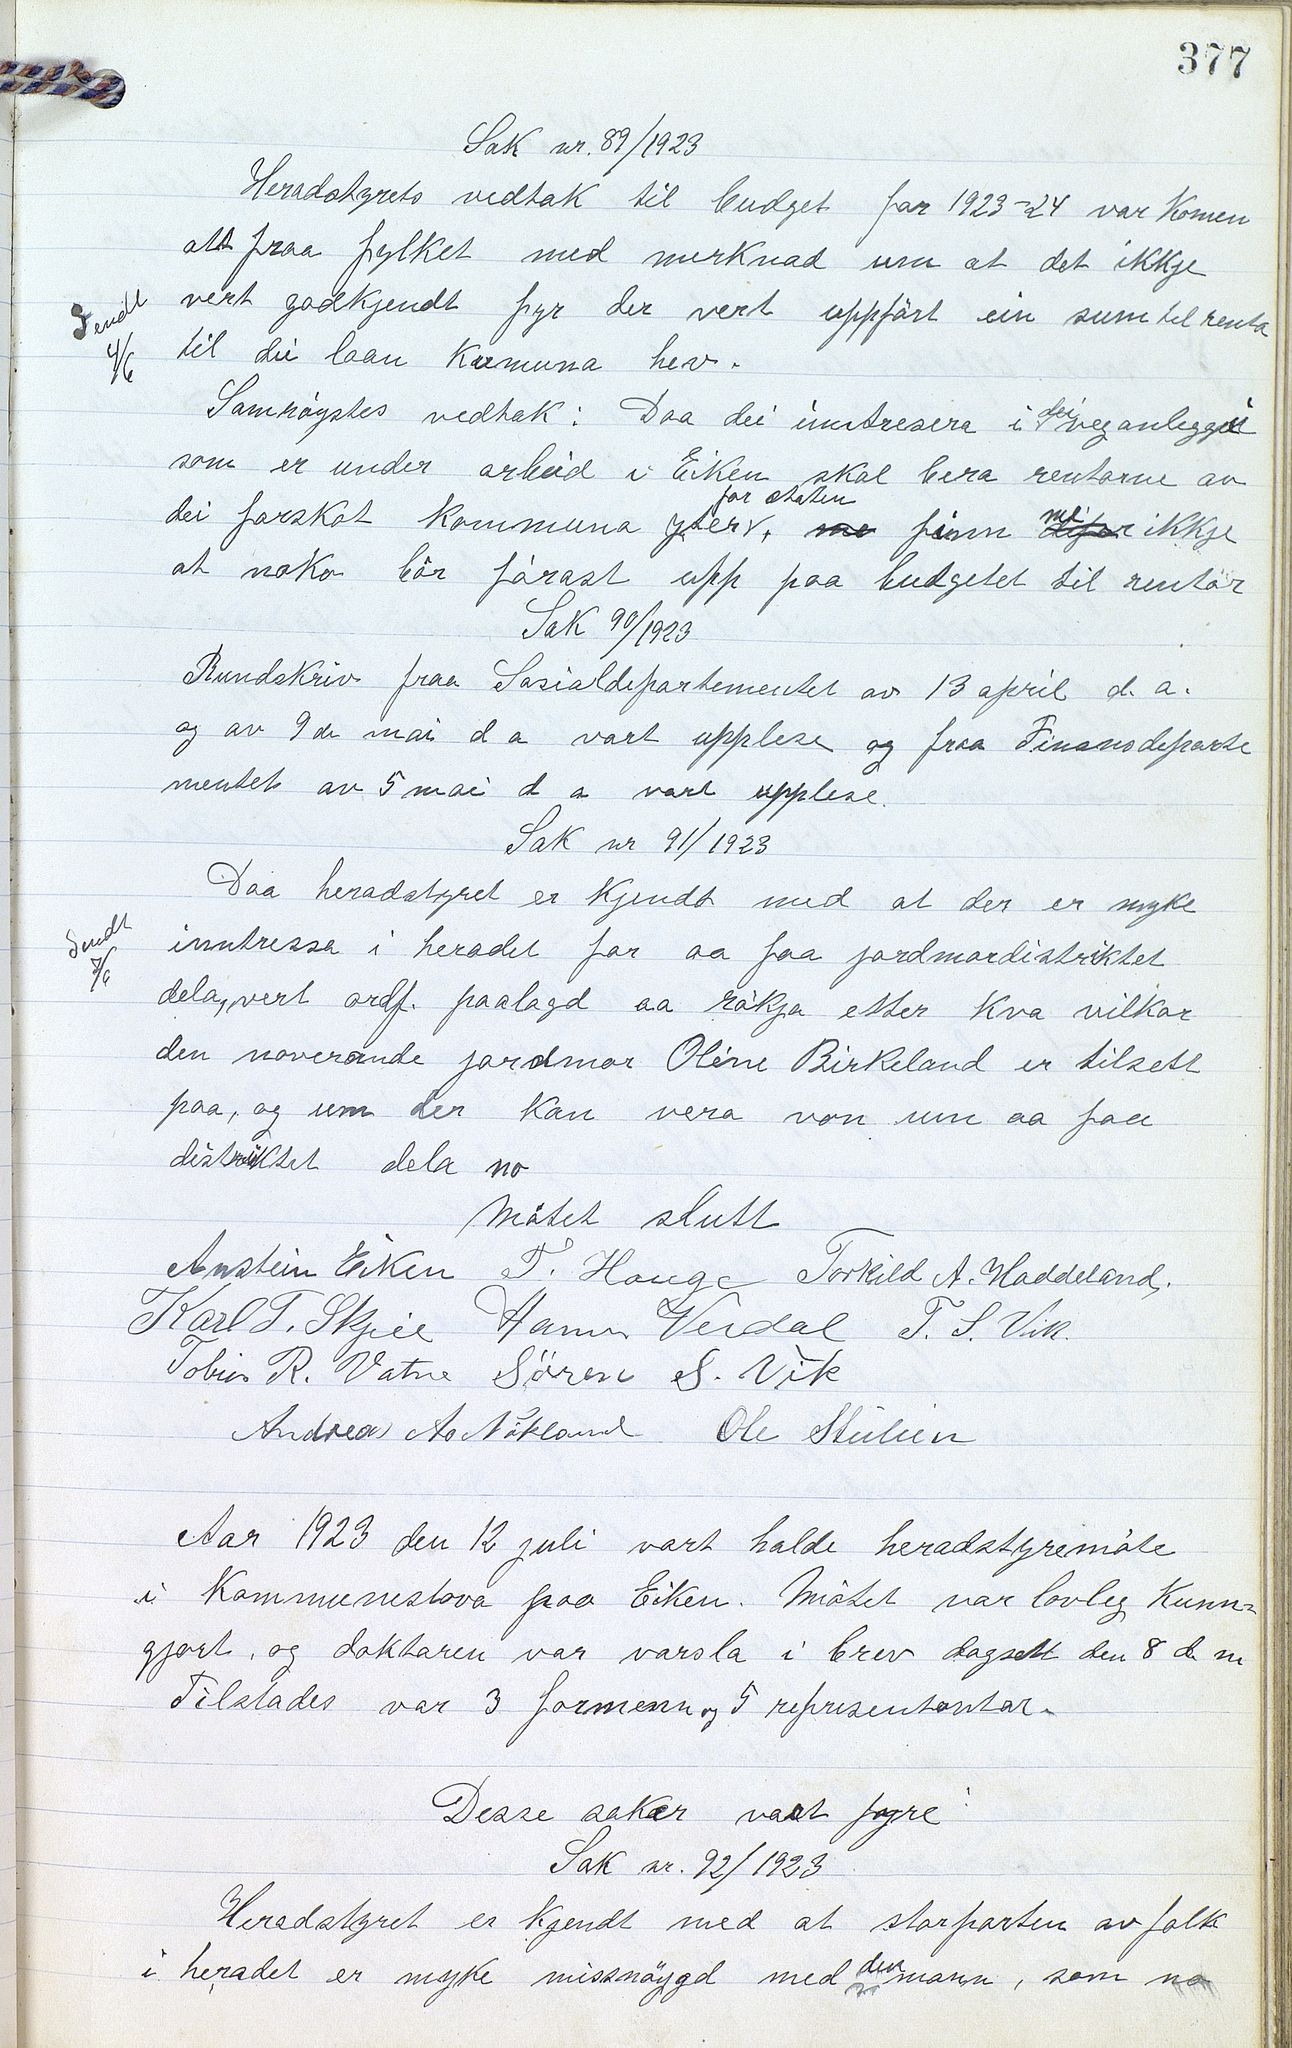 377
Sak nr. 89/1923
Heradstyrets vedtak til budget for 1923-24 var komen
att fraa fylket med merknad um at det ikkje
Sendt 4/6
vert godkjendt fyr der vert uppfört ein sum til renta
til dei laan komuna hev.
Samröystes vedtak: Daa dei inntresera i dei veganleggi
som er under arbeid i Eiken skal bera rentorne av
dei forskot kommuna yter for staten, me finn me ikkje
at noko bör förast upp paa budgetet til rentor
Sak 90/1923
Rundskriv fraa Sosialdepartementet av 13 april d. a.
og av 9 de mai d a vart upplese og fraa Finansdeparte
mentet av 5 mai d a vart upplese.
Sak nr 91/1923
Daa heradstyret er kjendt med at der er myke
Sendt 7/6
inntressa i heradet for aa faa jordmordistriktet
dela, vert ordf. paalagd aa rökja etter kva vilkor
den noverande jordmor Oline Birkeland er tilsett
paa, og um der kan vera von um aa faa
distriktet dela no
Mötet slutt
Anstein Eiken T. Hauge Torkild A. Haddeland.
Karl T. Skjeie Hans Verdal T. S. Vik.
Tobias R. Vatne Sören S. Vik
Andreas A. Nökland Ole Stulien
Aar 1923 den 12 juli vart halde heradstyremöte
i Kommunestova paa Eiken. Mötet var lovleg kunn-
gjort, og doktaren var varsla i brev dagsett den 8 d. m
Tilstades var 3 formenn og 5 representantar.
Desse saker vart fyre:
Sak nr. 92/1923
Heradstyret er kjendt med at storparten av folk
i heradet er myke missnöygd med den mann, som no